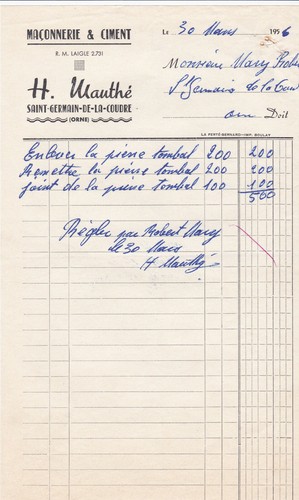 MAÇONNERIE & CIMENT
R. M. LAIGLE 2.731
H. Mauthé
SAINT-GERMAIN-DE-LA-COUDRE
(ORNE)
Le 30 Mars 1956
Monsieur Mary Robert
St Germain de la Coudre
Doit
LA FERTÉ-BERNARD - IMP. BOULAY
Enlever la pierre tombal 200 200
Remettre la pierre tombal 200 200
joint de la pierre tombal 100 100
500
Régler par Robert Mary
le 30 Mars
H Mauthé